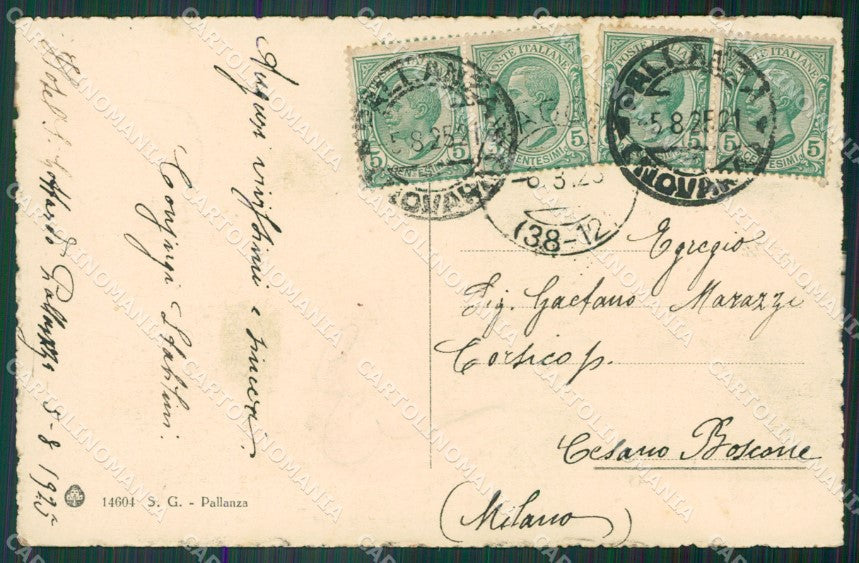 Hotel S. Gottardo Pallanza 5-8 1925
Auguri vivissimi e sinceri
Coniugi
POSTE ITALIANE
5 CENTESIMI 5
POSTE ITALIANE
5 CENTESIMI 5
POSTE ITALIANE
5 CENTESIMI 5
POSTE ITALIANE
5 CENTESIMI 5
PALLANZA
5.8.25 21
NOVARA
PALLANZA
5.8.25 21
NOVARA
(38-12
Egregio
Sig. Gaetano Marazzi
Corsico p.
Cesano Boscone
(Milano)
14604 S. G. - Pallanza
CARTOLINOMANIA